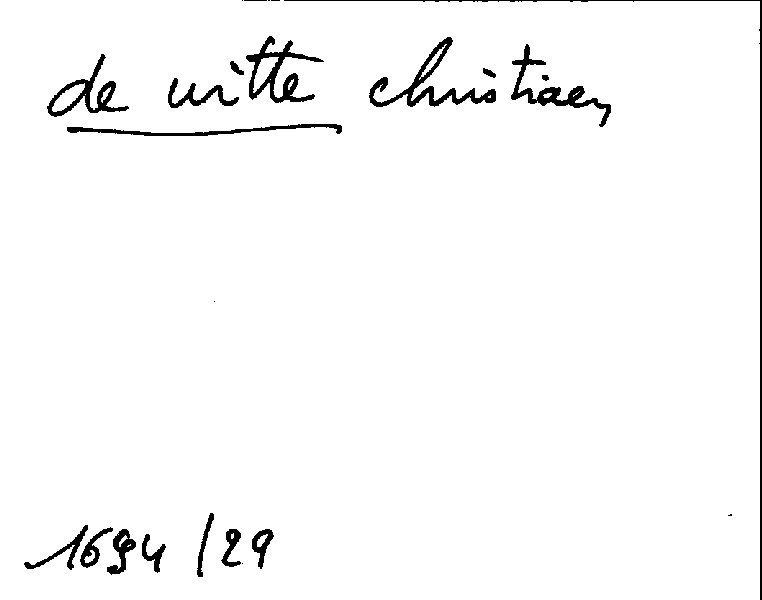 de witte christiaen
1694 / 29